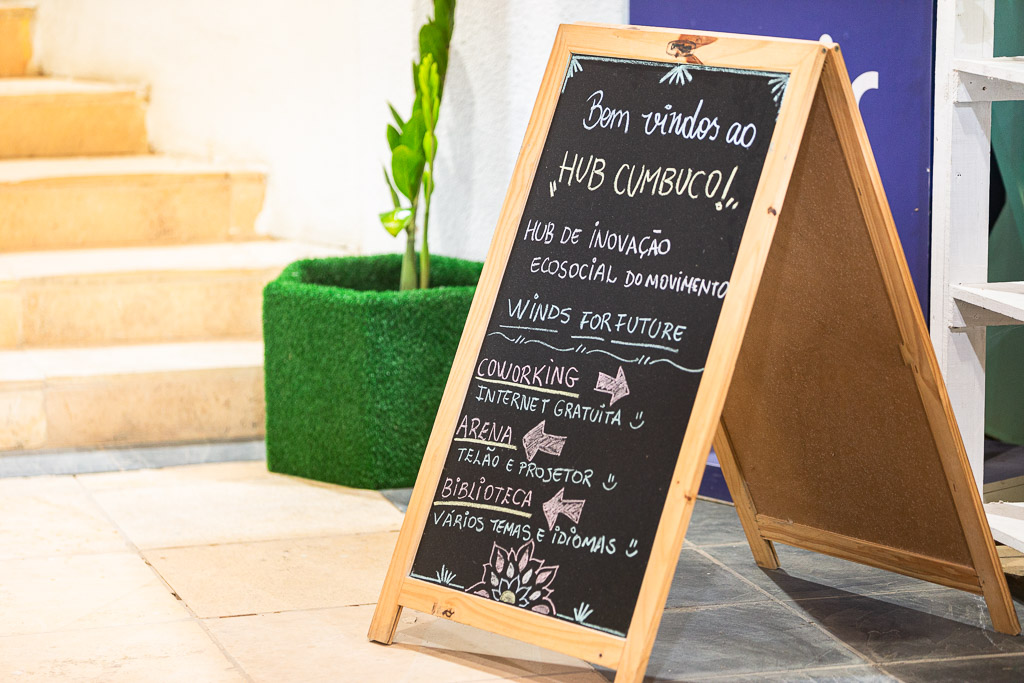 Bem vindos ao
"HUB CUMBUCO!"
HUB DE INOVAÇÃO
ECOSOCIAL DO MOVIMENTO
WINDS FOR FUTURE
COWORKING
INTERNET GRATUITA :)
ARENA
TELÃO E PROJETOR :)
BIBLIOTECA
VÁRIOS TEMAS E IDIOMAS :)